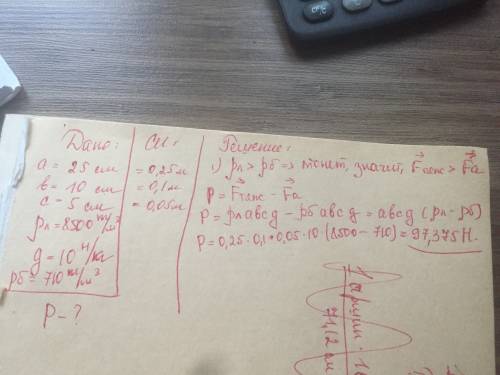 Дано:
a = 25 см
b = 10 см
c = 5 см
ρл = 8500 кг/м³
g = 10 Н/кг
ρб = 710 кг/м³
P - ?
СИ:
= 0,25м
= 0,1м
= 0,05м
Решение:
1) ρл > ρб => тонет, значит, Fтяж > Fа
P = Fтяж - Fа
P = ρлabcg - ρбabcg = abcg (ρл - ρб)
P = 0,25·0,1·0,05·10 (8500 - 710) = 97,375 Н.
1 аршин
71,12 см